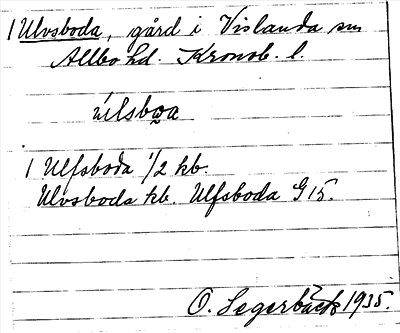 1 Ulvsboda, gård i Vislanda sn
Allbo hd. Kronob. l.
ùlsbo̬a
1 Ulfsboda 1/2 kb.
Ulvsboda kb. Ulfsboda G 15.
O. Segerbäck 1935.